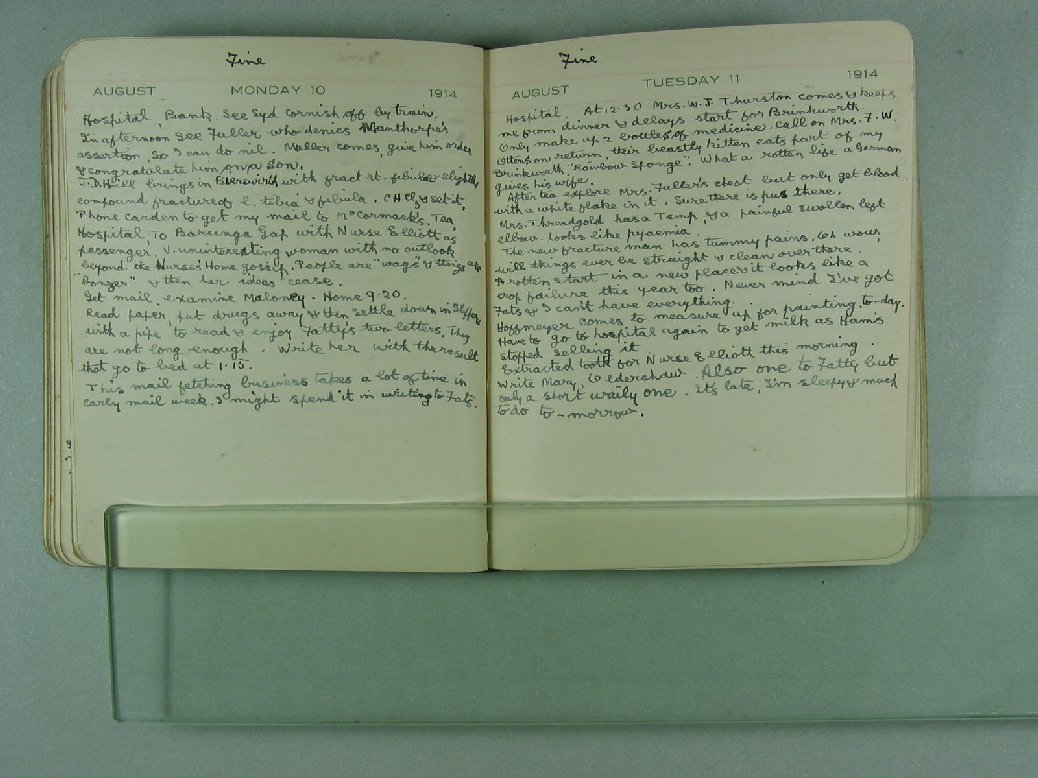 Fine
AUGUST MONDAY 10 1914
Hospital. Bank. See Syd Cornish off by train.
In afternoon see Fuller who denies Manthorpe's
assertion, so I can do nil. Muller comes, give him order
& congratulate him on a son.
J.D. Hill brings in with fract rt. fibula & slightly
compound fracture of l. tibia & fibula. CHCl3 & set it,
Phone Carden to get my mail to McCormacks. Tea,
Hospital, To Barunga Gap with Nurse Elliott as
passenger. V. uninteresting woman with no outlook
beyond the Nurses' Home gossip. People are "wags" & things are
"bonzer" & then her ideas cease.
Get mail, examine Maloney. Home 9.20.
Read paper, put drugs away & then settle down in slippers
with a pipe to read & enjoy Fatty's two letters. They
are not long enough. Write her with the result
that go to bed at 1.15.
This mail fetching business takes a lot of time in
early mail week. I might spend it in writing to Fats.
Fine
AUGUST TUESDAY 11 1914
Hospital. At 12.30 Mrs. W. J. Thurston comes & keeps
me from dinner & delays start for Brinkworth.
Only make up 2 bottles of medicine. Call on Mrs. F. W.
Ottens on return, their beastly kitten eats part of my
Brinkworth "Rainbow Sponge". What a rotten life a German
gives his wife.
After tea explore Mrs. Fuller's chest but only get blood
with a white flake in it. Sure there is pus there.
Mrs. Threadgold has a Temp, & a painful swollen left
elbow. Looks like pyaemia.
The new fracture man has tummy pains, Oh wow,
will things ever be straight & clean over there
A rotten start in a new place & it looks like a
crop failure this year too. Never mind I've got
Fats & I can't have everything.
Hoffmeyer comes to measure up for painting to-day.
Have to go to hospital again to get milk as Ham's
stopped selling it
Extracted tooth for Nurse Elliott this morning.
Write Mary, Oldershaw. Also one to Fatty but
only a short waily one. It's late, I'm sleepy & much
to do to-morrow.